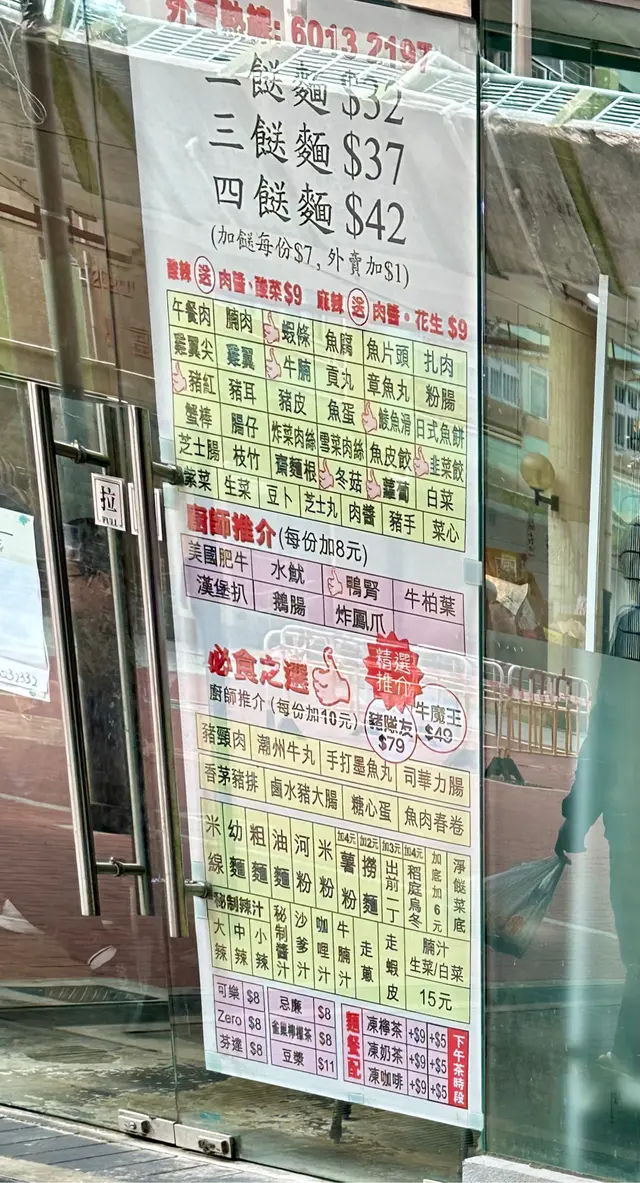 外賣熱線: 6013 2197
二餸麵 $32
三餸麵 $37
四餸麵 $42
(加餸每份$7, 外賣加$1)
酸辣 送 肉醬、酸菜 $9 麻辣 送 肉醬・花生 $9
午餐肉 腩肉 蝦條 魚腐 魚片頭 扎肉
雞翼尖 雞翼 牛腩 貢丸 章魚丸 粉腸
豬紅 豬耳 豬皮 魚蛋 鯪魚滑 日式魚餅
蟹棒 腸仔 炸菜肉絲 雪菜肉絲 魚皮餃 韭菜餃
芝士腸 枝竹 齋麵根 冬菇 蘿蔔 白菜
紫菜 生菜 豆卜 芝士丸 肉醬 豬手 菜心
廚師推介 (每份加8元)
美國肥牛 水魷 鴨腎 牛柏葉
漢堡扒 鵝腸 炸鳳爪
必食之選 精選推介
廚師推介 (每份加10元) 豬隊友 $79 牛魔王 $49
豬頸肉 潮州牛丸 手打墨魚丸 司華力腸
香茅豬排 鹵水豬大腸 糖心蛋 魚肉春卷
米線 幼麵 粗麵 油麵 河粉 米粉 加4元 薯粉 加2元 撈麵 加3元 出前一丁 加4元 稻庭烏冬 加底加6元 淨餸菜底
秘制辣汁
大辣 中辣 小辣 秘制醬汁 沙爹汁 咖哩汁 牛腩汁 走蔥 走蝦皮 腩汁生菜/白菜 15元
可樂 $8 忌廉 $8
Zero $8 金巢檸檬茶 $8
芬達 $8 豆漿 $11
麵餐配 下午茶時段
凍檸茶 +$9 +$5
凍奶茶 +$9 +$5
凍咖啡 +$9 +$5
拉
PULL